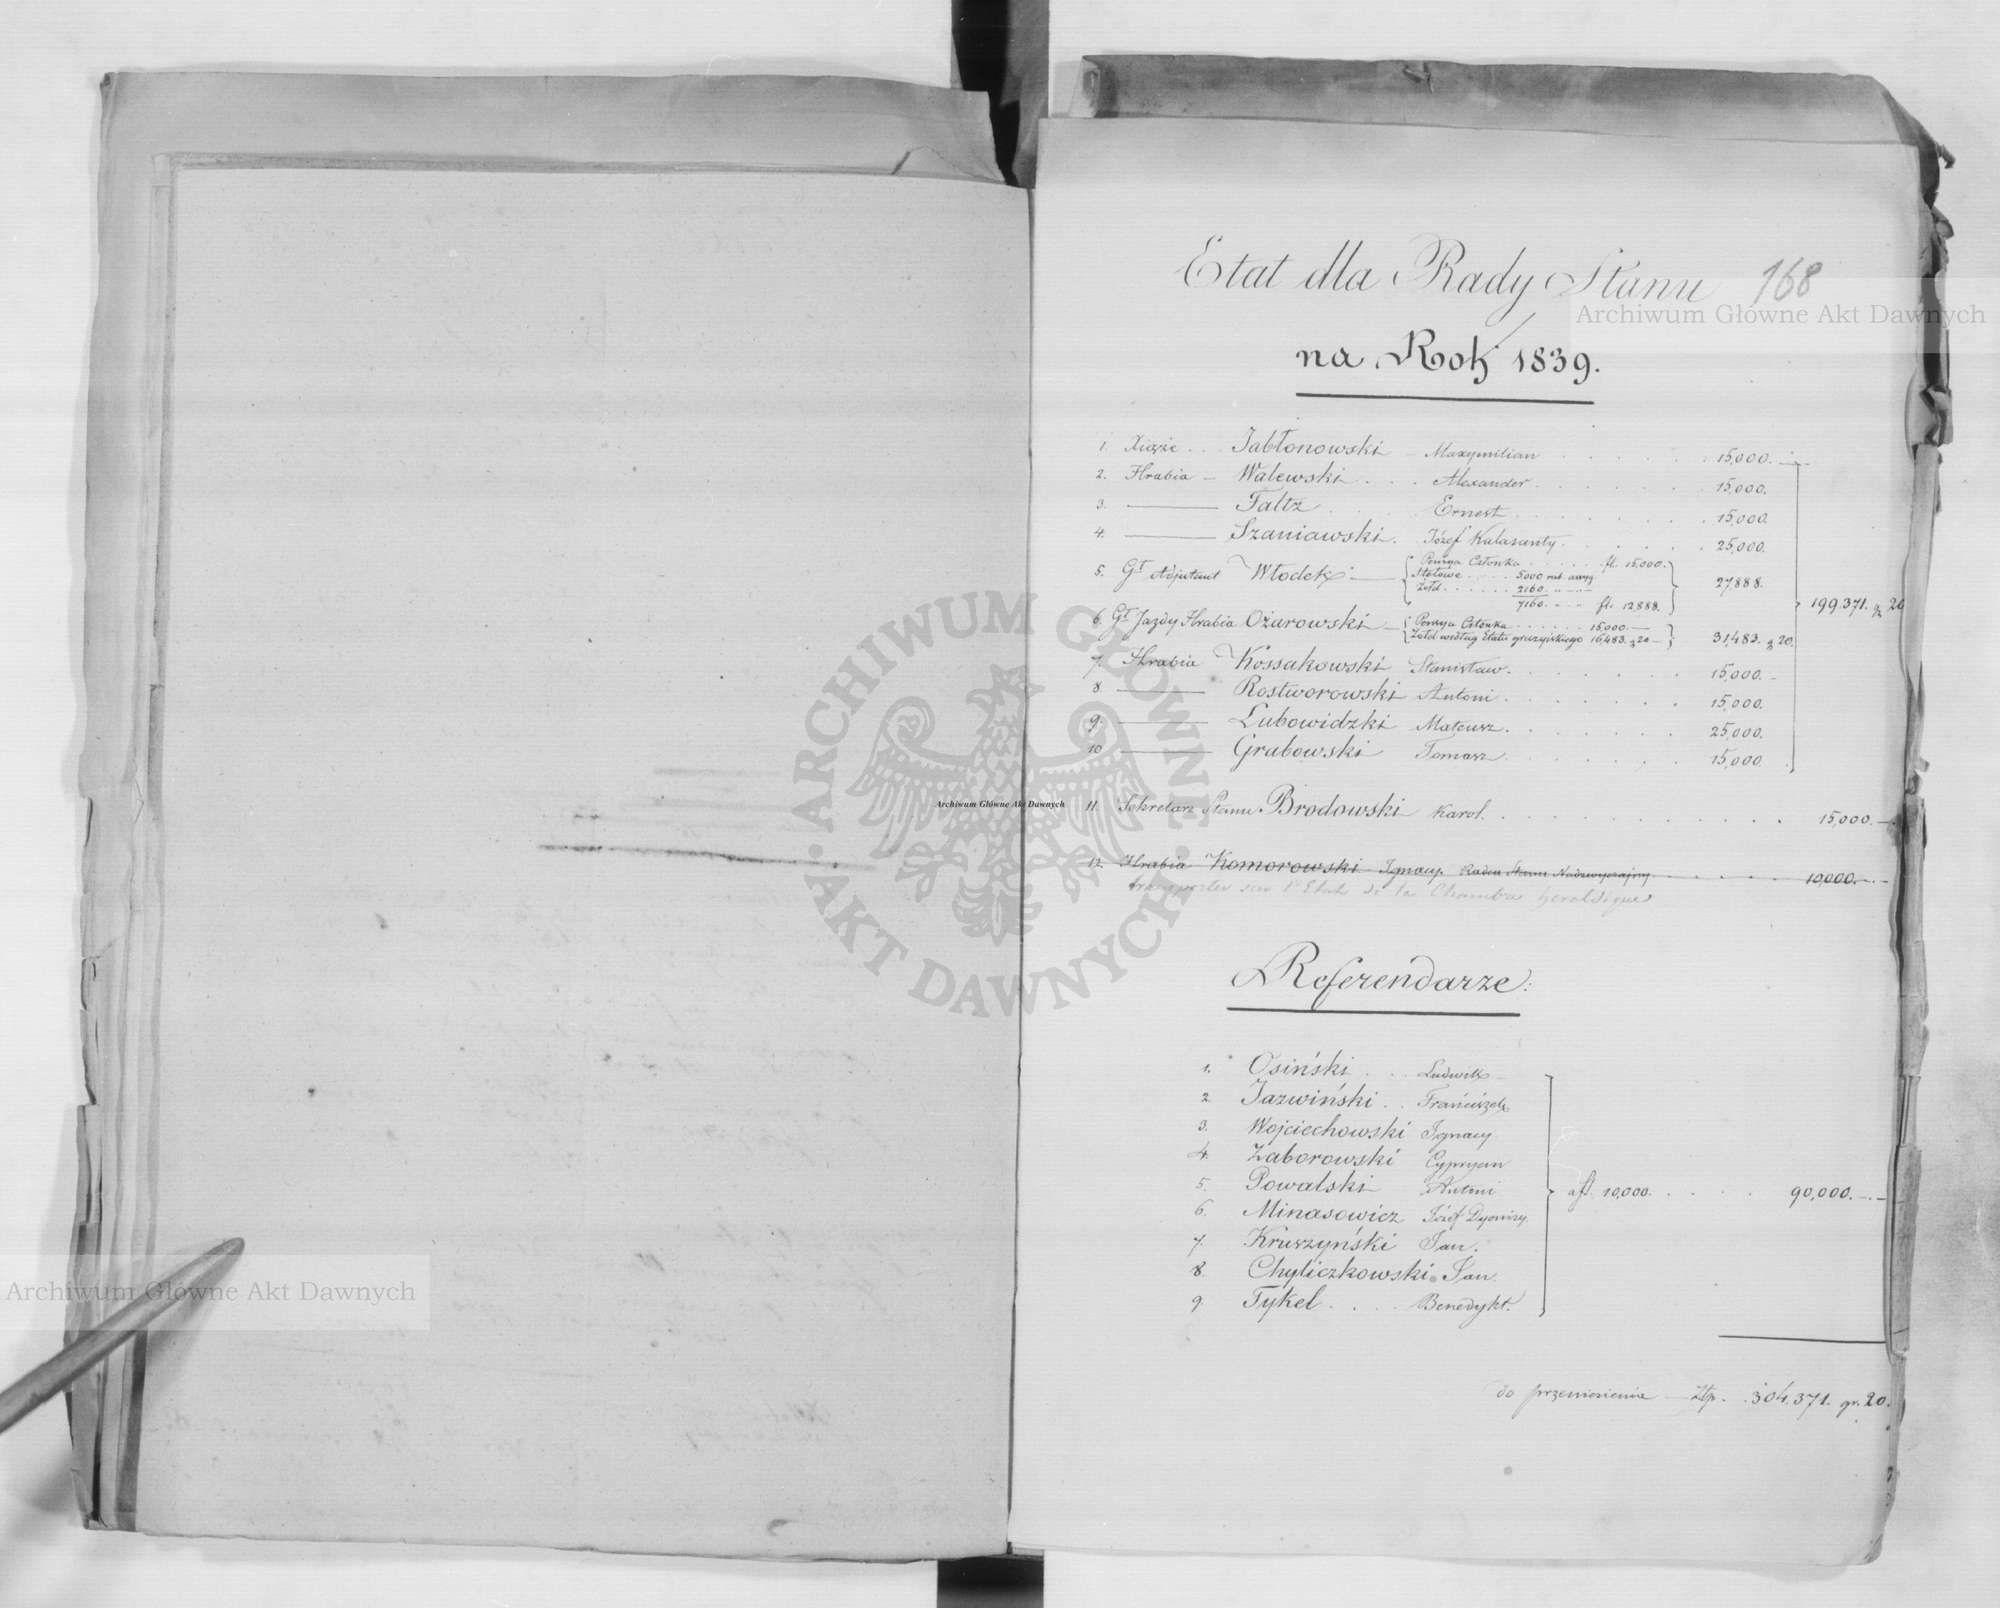 Etat dla Rady Stanu
168
Archiwum Główne Akt Dawnych
na Rok 1839.
1. Xiąże . . . Jabłonowski – Maxymilian . . . . . . 15,000. –
2. Hrabia – Walewski . . . Alexander . . . . . . 15,000.
3. ——— Faltz . . . . Ernest . . . . . . . 15,000.
4. ——— Szaniawski . . Józef Kalasanty . . . . . . 25,000.
5. Gł. Adjutant Włodek — Pensya Członka . . . . . . fl. 15,000.
Stołowe . . . . 5000 rub. assyg
Żołd . . . . . . 2160. " – –
7160. " – – fl. 12,888. 27,888.
199,371. gr 20
6. Gł. Jazdy Hrabia Ożarowski – Pensya Członka . . . . . . . 15,000. –
Żołd według Etatu gruzyńskiego 16,483. gr 20 – 31,483. gr 20.
7. Hrabia Kossakowski Stanisław . . . . . . . 15,000. –
8. ——— Rostworowski Antoni . . . . . . . 15,000.
9. ——— Lubowidzki Mateusz . . . . . . . 25,000.
10 ——— Grabowski Tomasz . . . . . . . 15,000.
11 Sekretarz Stanu Brodowski Karol . . . . . . . . . . . 15,000. –
12. Hrabia Komorowski Ignacy Radca Stanu Nadzwyczajny . . . . . . 10,000. –
transporter sur l'Etat de la Chambre heraldique
Referendarze:
1. Osiński . . . Ludwik –
2. Jazwiński . . Franciszek
3. Wojciechowski Ignacy
4. Zaborowski Cypryan
5. Powalski Antoni
a fl. 10,000. . . . . . 90,000. –
6. Minasowicz Józef Dyonizy
7. Kruszyński Jan.
8. Chyliczkowski Jan.
9. Tykel . . . . Benedykt.
do przeniesienia — Złp. 304,371. gr. 20.
ARCHIWUM GŁÓWNE AKT DAWNYCH
Archiwum Główne Akt Dawnych
Archiwum Główne Akt Dawnych